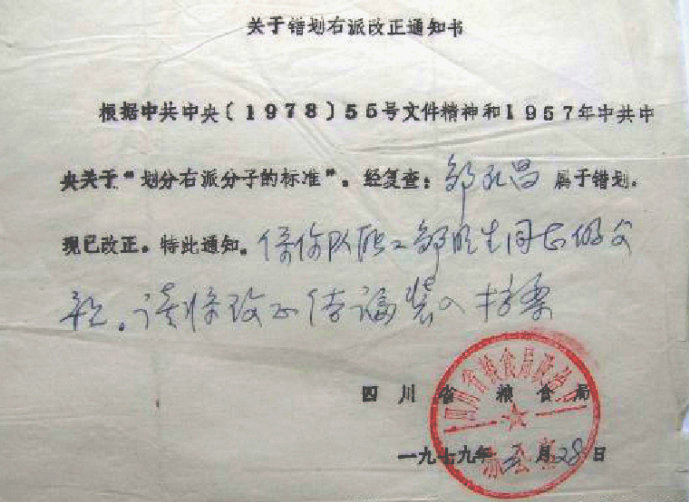 关于错划右派改正通知书
根据中共中央〔1978〕55号文件精神和1957年中共中
央关于“划分右派分子的标准”。经复查：邹孔昌 属于错划。
现已改正。特此通知。系你队职工邹胜生同志的父
亲。请将改正信函装入档案
四川省粮食局
一九七九年 月28日
四川省粮食局政治部
办公室